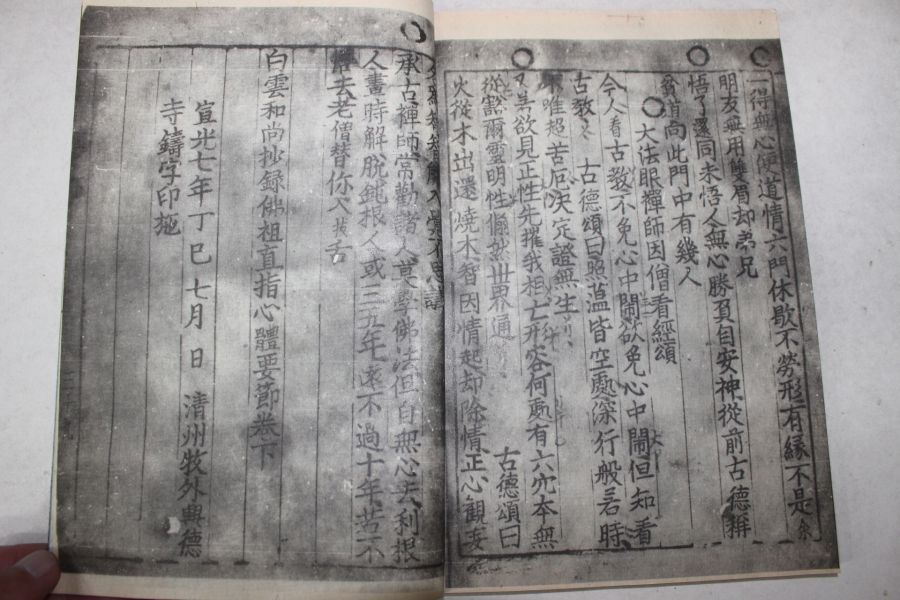 一得無心便道情六門休歇不勞形有緣不是余
朋友無用雙眉却弟兄
悟了還同未悟人無心勝負自安神從前古德稱
貧道向此門中有幾人
大法眼禪師因僧看經頌
今人看古教不免心中鬧欲免心中鬧但知看
古教 古德頌曰照蘊皆空處深行般若時
唯超苦厄決定證無生
又若欲見正性先摧我相亡形容何處有六穴本無
從豁爾靈明性翛然世界通 古德頌曰
火從木出還燒木智因情起却除情正心觀妄
承古禪師常勸諸人莫學佛法但自無心去利根
人晝時解脫鈍根人或三五年遠不過十年若不
悟去老僧替你入拔舌
白雲和尚抄錄佛祖直指心體要節卷下
宣光七年丁巳七月 日 清州牧外興德
寺鑄字印施